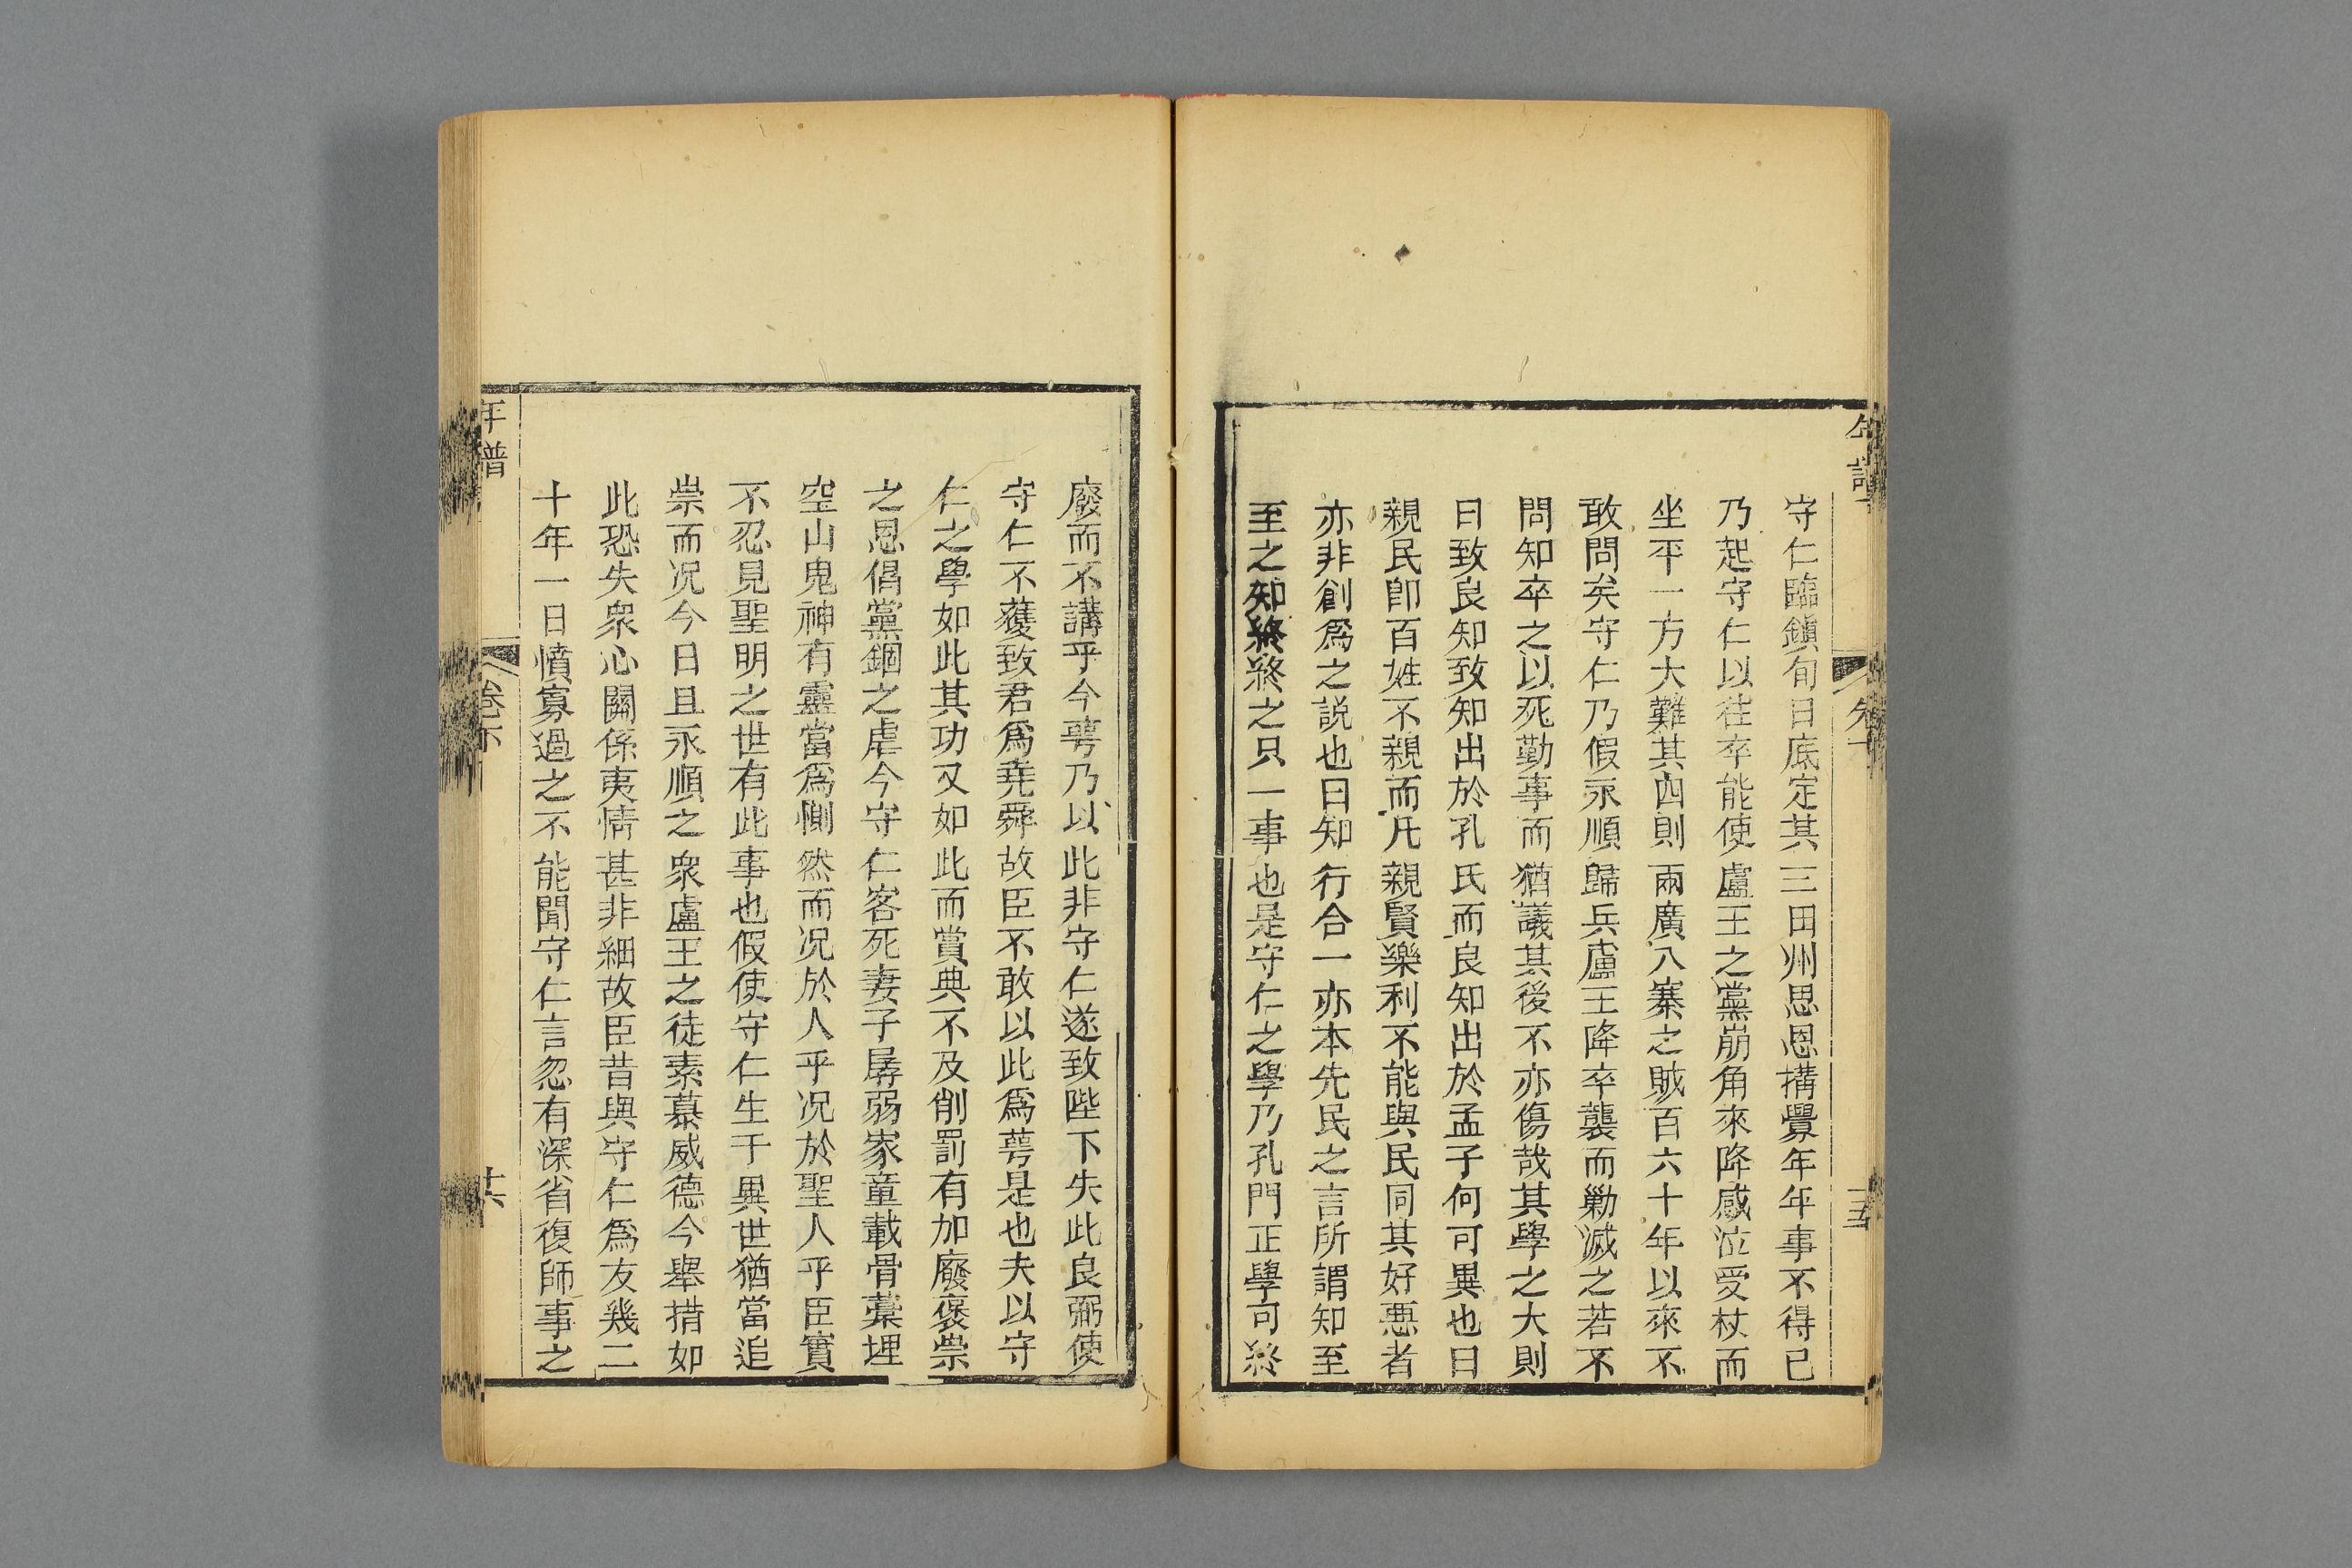 守仁臨鎮旬日底定其三田州思恩搆釁年年事不得已
乃起守仁以往卒能使盧王之黨崩角來降感泣受杖而
坐平一方大難其四則兩廣八寨之賊百六十年以來不
敢問矣守仁乃假永順歸兵盧王降卒襲而勦滅之若不
問知卒之以死勤事而猶議其後不亦傷哉其學之大則
曰致良知致知出於孔氏而良知出於孟子何可異也曰
親民卽百姓不親而凡親賢樂利不能與民同其好惡者
亦非創爲之説也曰知行合一亦本先民之言所謂知至
至之知終終之只一事也是守仁之學乃孔門正學可終
廢而不講乎今萼乃以此非守仁遂致陛下失此良弼使
守仁不獲致君爲堯舜故臣不敢以此爲萼是也夫以守
仁之學如此其功又如此而賞典不及削罰有加廢褒崇
之恩倡黨錮之虐今守仁客死妻子孱弱家童載骨藁埋
空山鬼神有靈當爲惻然而况於人乎况於聖人乎臣實
不忍見聖明之世有此事也假使守仁生于異世猶當追
崇而况今日且永順之衆盧王之徒素慕威德今舉措如
此恐失衆心關係夷情甚非細故臣昔與守仁爲友幾二
十年一日憤寡過之不能聞守仁言忽有深省復師事之
年譜
卷下
十六